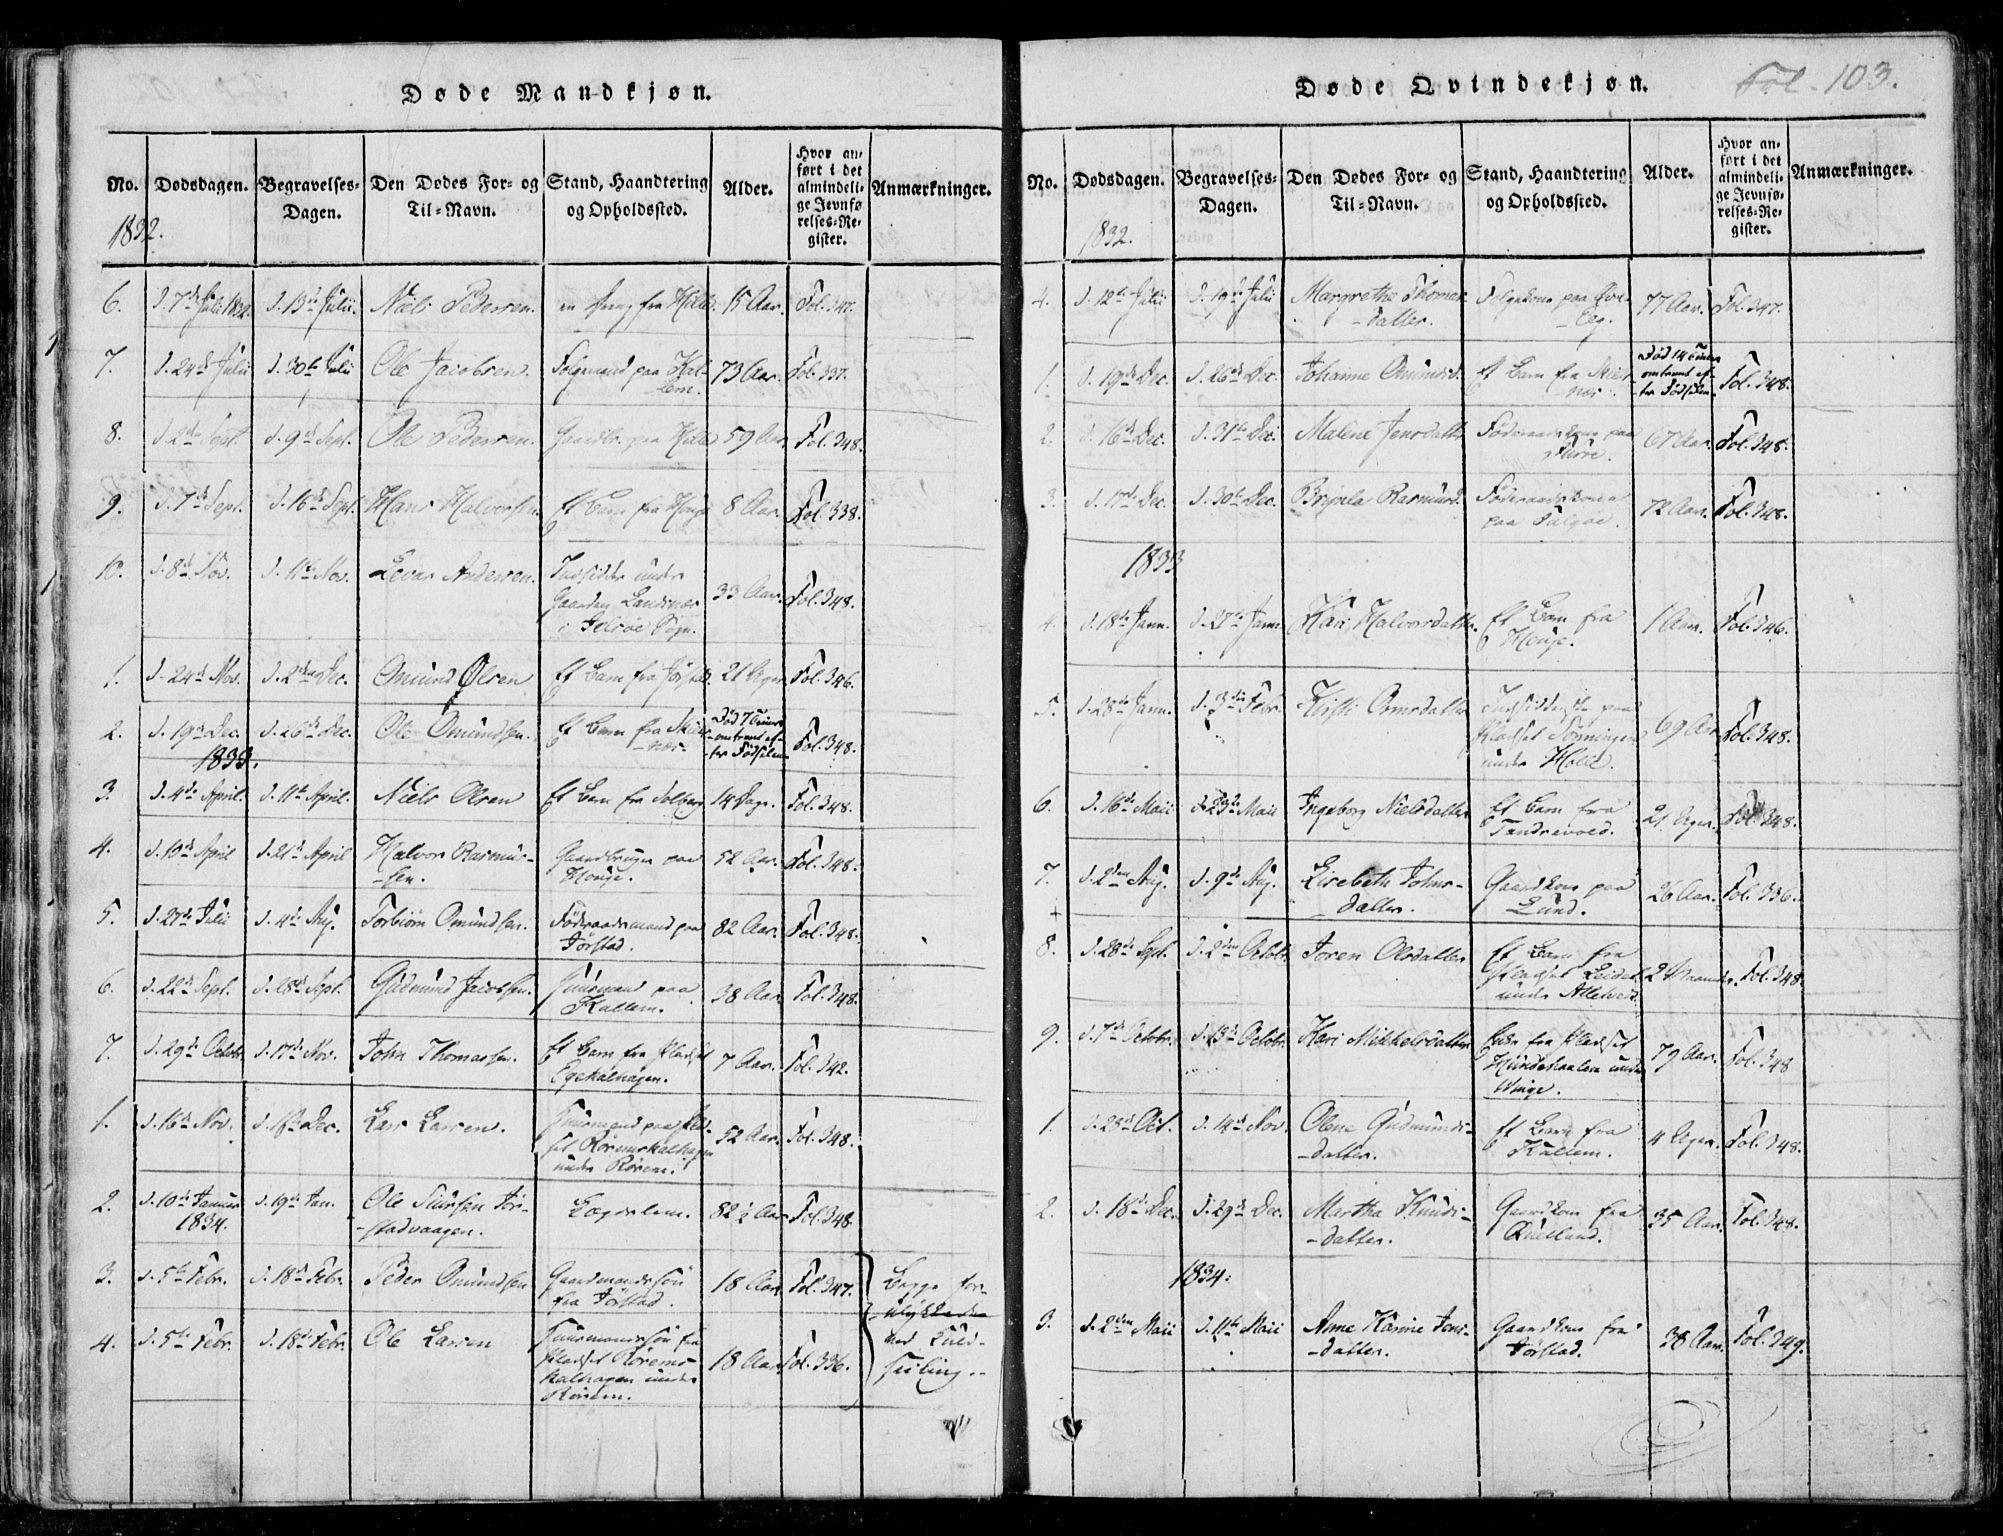 Døde Mandkjøn.
No. Dødsdagen. Begravelses-Dagen. Den Dødes For- og Til-Navn. Stand, Haandtering og Opholdssted. Alder. Hvor anført i det almindelige Jevnførelses-Register. Anmærkninger.
1832.
6. d. 7de Julii 1832. d. 13de Julii. Niels Pedersen. en fra Hilde 15 Aar. Fol. 347.
7. d. 24de Julii d. 30te Julii Ole Jacobsen. Folgemand paa Kal-
lem. 73 Aar. Fol. 337.
8. d. 2den Sept. d. 9de Sept. Ole Pedersen. Gaardbr. paa Hilde 59 Aar Fol. 348.
9. d. 7de Sept. d. 16de Sept. Hans Halvorsen. Et Barn fra Houge 8 Aar. Fol. 338.
10. d. 8de Nov. d. 11te Nov. Levar Andersen. Indsidder under
Gaarden Landsnæs
i Sogn. 33 Aar. Fol. 348.
1. d. 24de Nov. d. 2den Dec. Omund Olsen Et Barn fra Jørstad. 21 Uger Fol. 346.
2. d. 19de Dec. d. 26de Dec. Ole Omundsen. Et Barn fra
-næs. Død 7 Timer
omtrent ef-
ter Fødselen Fol. 348.
1833.
3. d. 4de April. d. 11te April. Niels Olsen Et Barn fra Solberg 14 Dage. Fol. 348.
4. d. 13de April d. 21de April Halvor Rasmus-
sen. Gaardbruger paa
Houge. 52 Aar. Fol. 348.
5. d. 27de Julii d. 4de Aug. Torbiørn Omundsen. Føderaadsmand paa
Jørstad. 82 Aar. Fol. 348.
6. d. 22de Sept. d. 28de Sept. Gudmund Jacobsen. Huusmand paa
Kallem. 38 Aar Fol. 348.
7. d. 29de Octobr. d. 17de Nov. John Thomassen. Et Barn fra Pladset
Egekalhagen. 7 Aar. Fol. 342.
1. d. 16de Nov. d. 1ste Dec. Lars Larsen. Huusmand paa Plad-
set Røremskalhagen
under Rørem. 52 Aar. Fol. 348.
2. d. 10de Januar
1834. d. 19de Jan. Ole Siursen Jør-
stadvaagen. Lægdslem. 82 1/2 Aar Fol. 348
3. d. 5te Febr. d. 18de Febr. Peder Omundsen Gaardmandssøn
fra Jørstad. 18 Aar Fol. 347. Begge for-
ulykkede
ved Kuld-
seiling..
4. d. 5te Febr. d. 18de Febr Ole Larsen Huusmandssøn fra
Pladset Rørems-
kalhagen under
Rørem. 18 Aar Fol. 336.
Døde Qvindekjøn.
Fol. 103.
No. Dødsdagen. Begravelses-Dagen. Den Dødes For- og Til-Navn. Stand, Haandtering og Opholdssted. Alder. Hvor anført i det almindelige Jevnførelses-Register. Anmærkninger.
1832.
4. d. 12te Julii d. 19de Julii Margrethe Thomas-
datter. Folgekone paa
77 Aar. Fol. 347.
1. d. 19de Dec. d. 26de Dec. Johanne Omundsd. Et Barn fra
næs. Død 14 Timer
omtrent ef-
ter Fødselen. Fol. 348.
2. d. 16de Dec. d. 31te Dec. Malene Jensdatter Føderaadskone paa
67 Aar. Fol. 348.
3. d. 17de Dec. d. 30te Dec. Brynla Rasmusd. Føderaadskone
paa Talgøe. 72 Aar. Fol. 348.
1833
4. d. 18de Jann. d. 27de Jann. Kari Halvorsdatter. Et Barn fra
Houge. 1 Aar. Fol. 346.
5. d. 28de Jann. d. 3die Febr. Kisti Ormsdatter Indsidderske paa
Pladset
under Holle. 69 Aar Fol. 348.
6. d. 16de Maii d. 23de Maii Ingeborg Nielsdatter Et Barn fra
Tandrevold. 21 Uger. Fol. 348.
7. d. 2den Aug. d. 9de Aug. Lisebeth Johns-
datter. Gaardkone paa
Lund. 26 Aar. Fol. 336.
8. d. 28de Sept. d. 2den Octobr. Joren Olsdatter Et Barn fra
Pladset
under 2 Maaneder. Fol. 348.
9. d. 7de Octobr. d. 13de Octobr. Kari Mikkelsdatter fra Pladset
under
Winge. 79 Aar. Fol. 348
1. d. 23de Oct. d. 14de Nov. Olene Gudmunds-
datter. Et Barn fra
Kallem. 4 Uger. Fol. 348.
2. d. 18de Dec. d. 29de Dec. Martha Knuds-
datter. Gaardkone fra
Qualland. 35 Aar. Fol. 348.
1834.
3. d. 2den Maii d. 11te Maii Anne Karine Jens-
datter. Gaardkone fra
Jørstad. 38 Aar. Fol. 349.